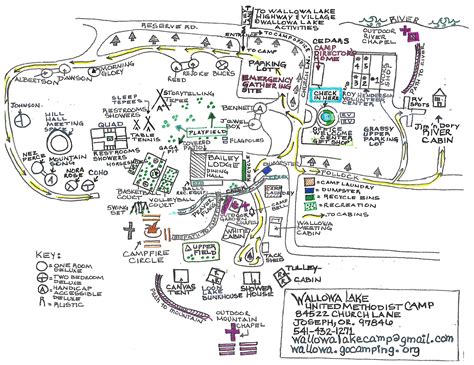 TO WALLOWA LAKE
HIGHWAY & VILLAGE
WALLOWA LAKE
ACTIVITIES
RIVER
RESERVE RD.
TO CAMP OFFICE
TO CAMP
OUTDOOR
RIVER
CHAPEL
CEDARS
CAMP
DIRECTOR'S
HOME
SHOP
MORNING
GLORY
ALBERTSON
DAWSON
REED
REJOICE
BUCKS
PARKING
LOT
EMERGENCY
GATHERING
SITE
CHECK
IN HERE
ROY HENDERSON
RV
SPOTS
JIM DOTY
RIVER
CABIN
JOHNSON
HILL
HALL
MEETING
SPACE
SLEEP
TEPEES
STORYTELLING
TEPEE
RESTROOMS
SHOWERS
QUAD
TABLE
TENNIS
PLAYFIELD
BENNETT
JEWEL
BOX
FLAGPOLES
COVERED
PATIO
OFFICE
WELCOME
CENTER
GIFT SHOP
GRASSY
UPPER
PARKING
LOT
NEZ
PERCE
MOUNTAIN
GOAT
NORA
ROSE
COHO
RESTROOMS
SHOWERS
HORSESHOES
GAGA
PIT
BAILEY
LODGE
DINING
HALL
DUMPSTER
POLLOCK
BASKETBALL
COURT
VOLLEYBALL
COURT
SWING
SET
CAMPFIRE
CIRCLE
OUTDOOR
GARDEN
CHAPEL
WHITE
CABIN
UPPER
FIELD
TACK
SHED
WALLOWA
MEETING
CABIN
CAMP LAUNDRY
DUMPSTER
RECYCLE BINS
RECREATION
TO CABINS
TULLEY
CABIN
CANVAS
TENT
LOUIS
BUNKHOUSE
SHOWER
HOUSE
PATH TO
MOUNTAIN
OUTDOOR
MOUNTAIN
CHAPEL
KEY:
ONE ROOM
DELUXE
TWO BEDROOM
DELUXE
HANDICAP
ACCESSIBLE
DELUXE
R RUSTIC
WALLOWA LAKE
UNITED METHODIST CAMP
84522 CHURCH LANE
JOSEPH, OR. 97846
541-432-1271
wallowalakecamp@gmail.com
wallowa.gocamping.org